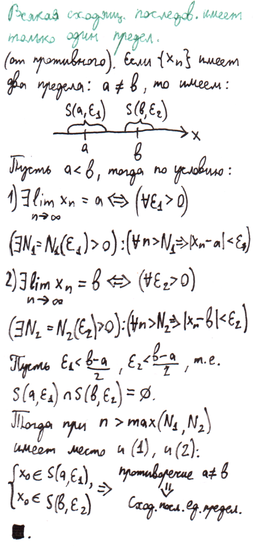 Всякая сходящ. последов. имеет
только один предел.
(от противного). Если {xₙ} имеет
два предела: a ≠ b, то имеем:
S(a,ε₁) S(b,ε₂)
a b x
Пусть a < b, тогда по условию:
1) ∃ lim xₙ = a ⇔ (∀ε₁>0)
n→∞
(∃N₁=N₁(ε₁)>0):(∀n>N₁⇒|xₙ-a|<ε₁)
2) ∃ lim xₙ = b ⇔ (∀ε₂>0)
n→∞
(∃N₂=N₂(ε₂)>0):(∀n>N₂⇒|xₙ-b|<ε₂)
Пусть ε₁<(b-a)/2, ε₂<(b-a)/2, т.е.
S(a,ε₁)∩S(b,ε₂)=∅.
Тогда при n>max(N₁,N₂)
имеет место и (1), и (2):
{x₀ ∈ S(a,ε₁), ⇒ противоречие a≠b
x₀ ∈ S(b,ε₂) ⇓
Сход. посл. ед. предел.